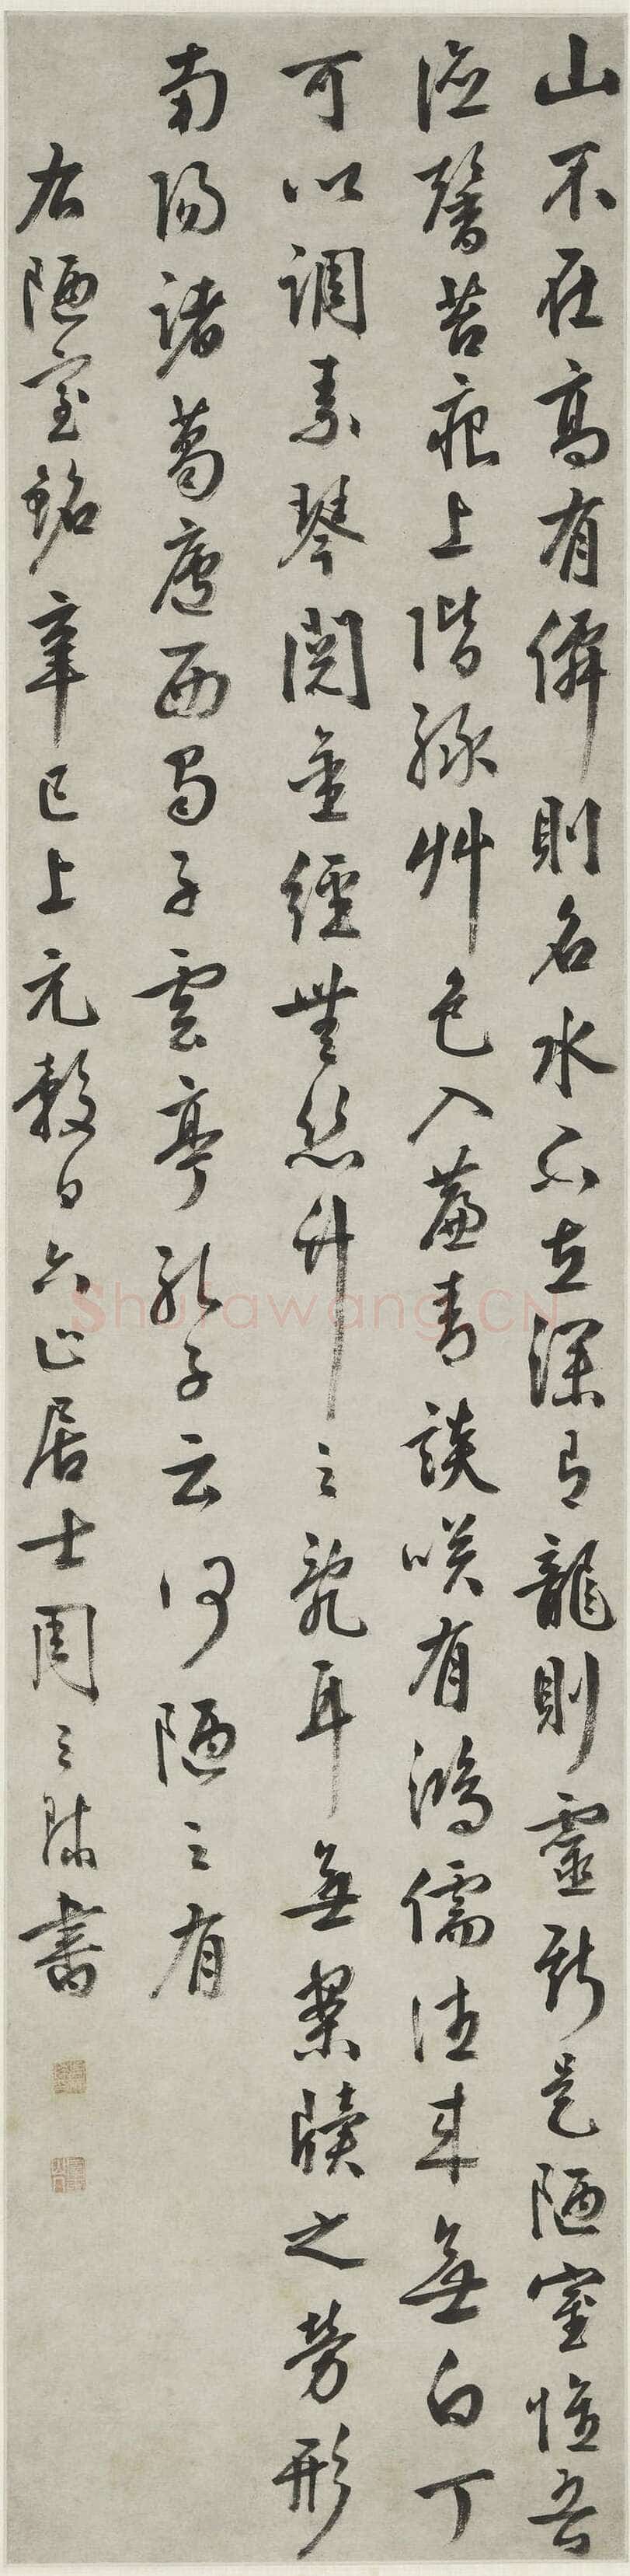 山不在高有僊則名水不在深有龍則靈斯是陋室惟吾
德馨苔痕上階綠艸色入簾青談咲有鴻儒往來無白丁
可以調素琴閱金經無絲竹之亂耳無案牘之勞形
南陽諸葛廬西蜀子雲亭孔子云何陋之有
右陋室銘辛巳上元穀日六止居士周之
書
Shufawang.CN